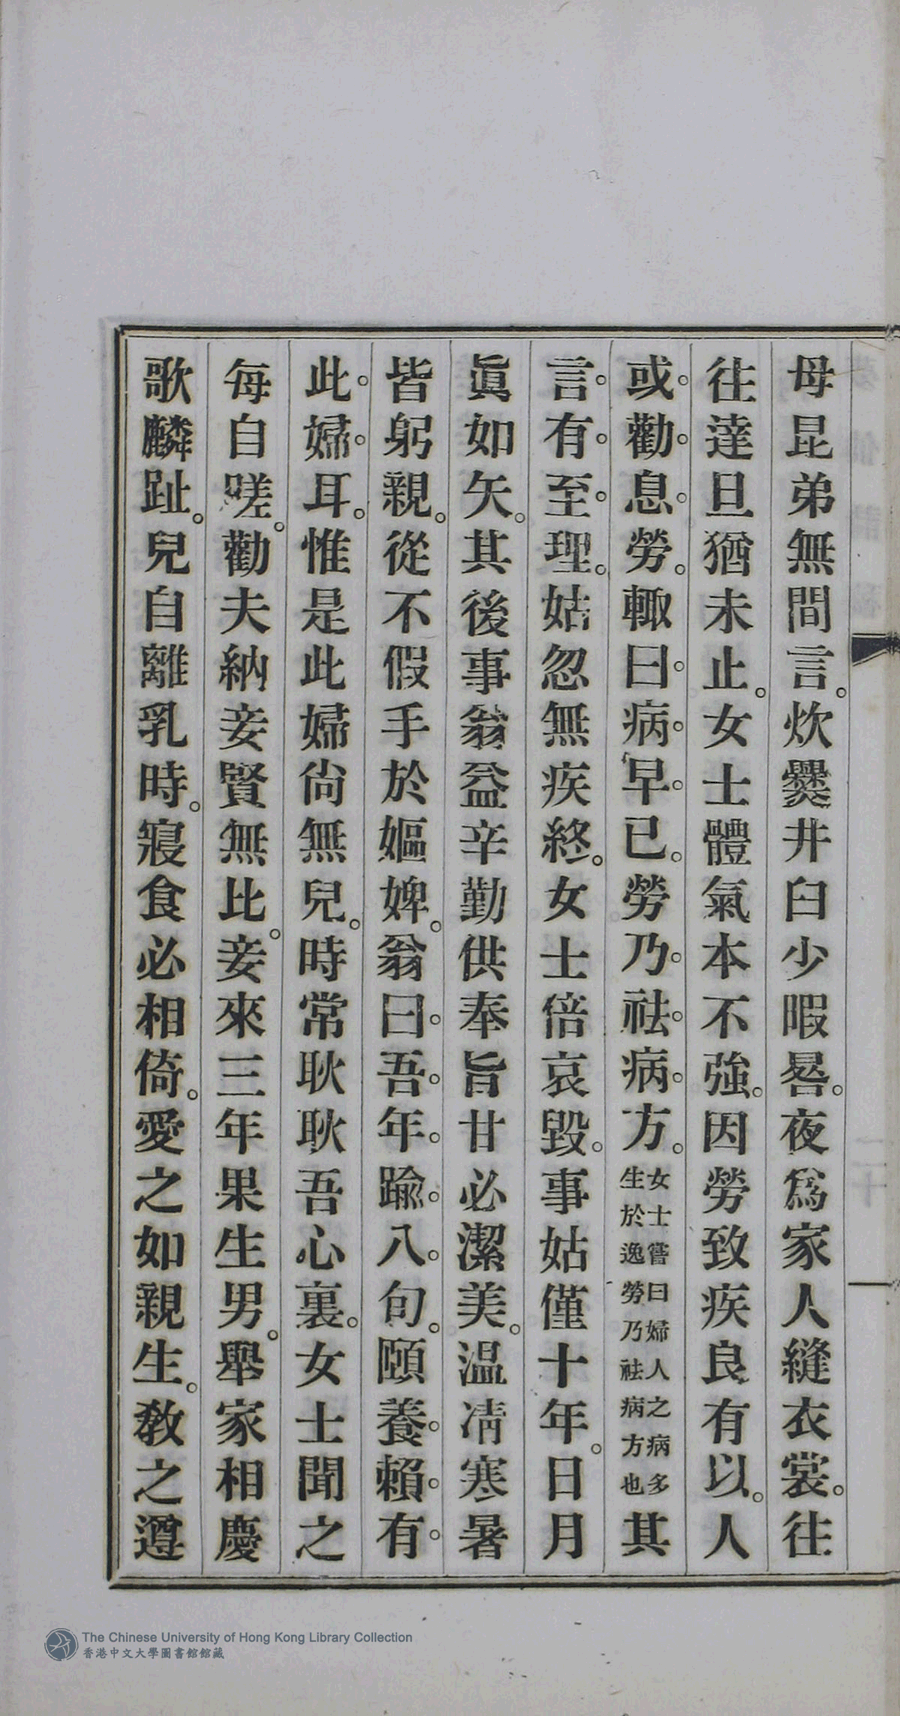 母昆弟無間言。炊爨井臼少暇晷。夜爲家人縫衣裳。往
往達旦猶未止。女士體氣本不強。因勞致疾良有以。人
或勸息勞。輙曰病早已。勞乃祛病方。女士嘗曰婦人之病多生於逸勞乃祛病方也其
言有至理。姑忽無疾終。女士倍哀毀。事姑僅十年。日月
眞如矢。其後事翁益辛勤供奉旨甘必潔美。温凊寒暑
皆躬親。從不假手於嫗婢。翁曰吾年踰八旬。頤養賴有
此婦耳。惟是此婦尙無兒。時常耿耿吾心裏。女士聞之
每自嗟。勸夫納妾賢無比。妾來三年果生男。舉家相慶
歌麟趾。兒自離乳時。寢食必相倚。愛之如親生。教之遵
The Chinese University of Hong Kong Library Collection
香港中文大學圖書館館藏